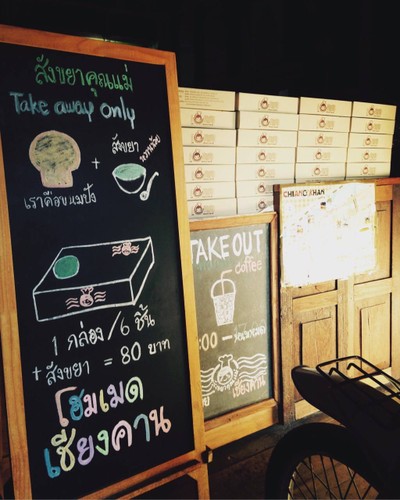 สังขยาคุณแม่
Take away only
+ สังขยา
หวานน้อย
เราคือขนมปัง
1 กล่อง / 6 ชิ้น
+ สังขยา = 80 บาท
โฮมเมด
เชียงคาน
TAKE OUT
coffee
:00 -
เชียงคาน
CHIANG KHAN